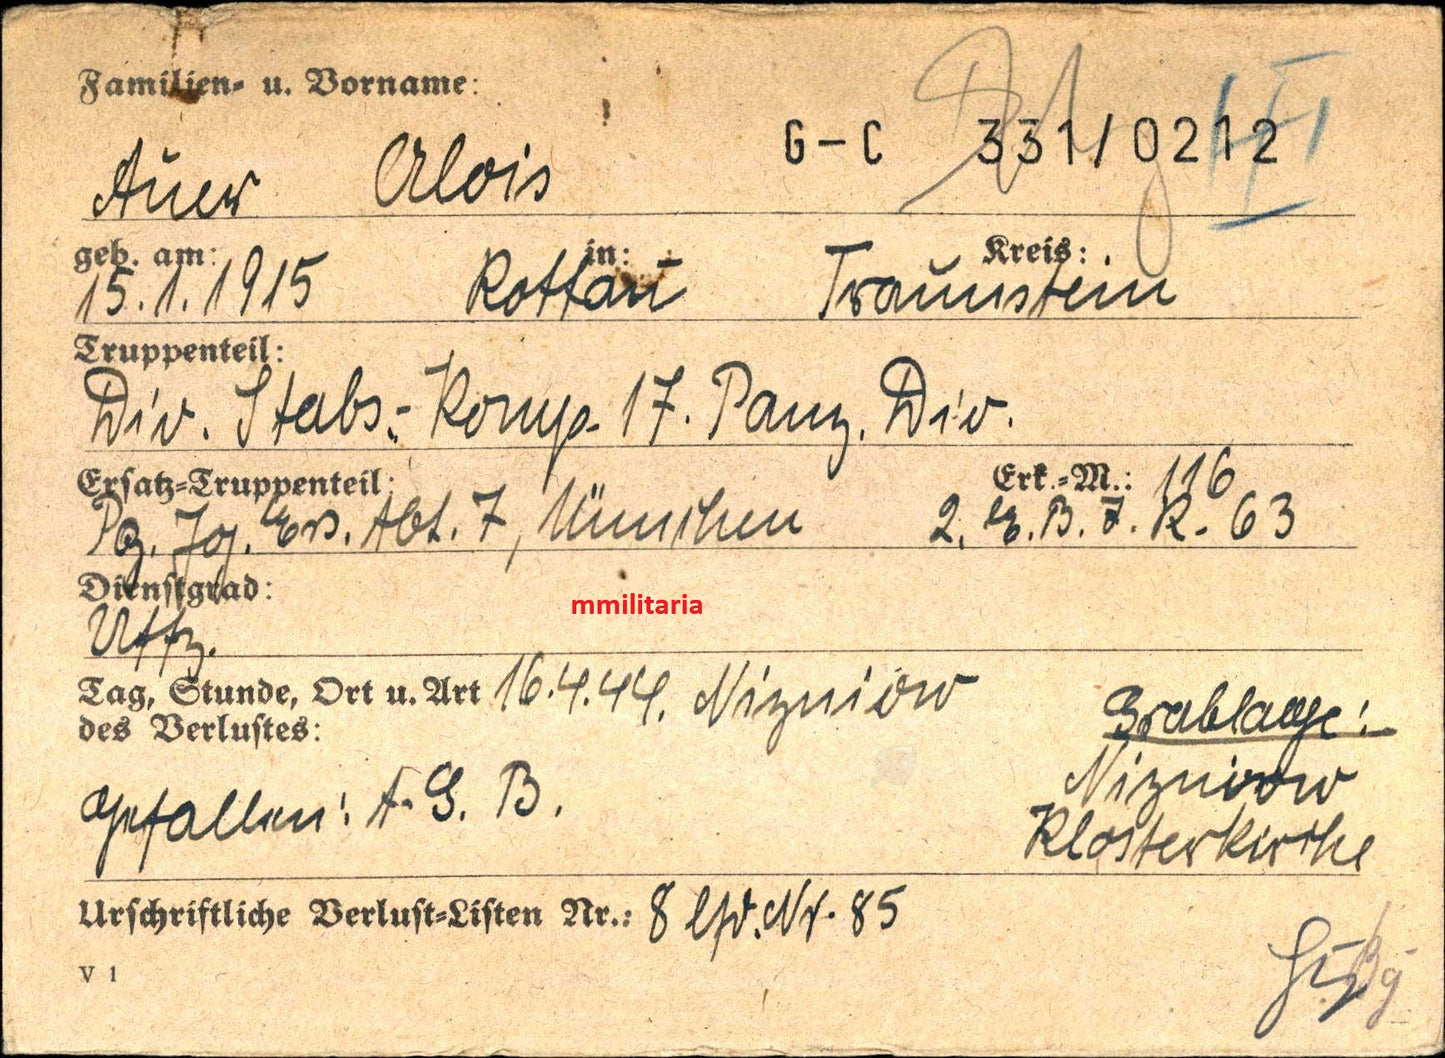 Familien- u. Vorname:
G-C 331/0212
Auer Alois
geb. am: in: Kreis:
15.1.1915 Rottau Traunstein
Truppenteil:
Div. Stabs-Komp. 17. Panz. Div.
Ersatz-Truppenteil: Erk.-M.: 116
Pz. Jg. Ers. Abt. 7, München 2. E. B. J. R. 63
Dienstgrad:
Uffz.
mmilitaria
Tag, Stunde, Ort u. Art 16.4.44. Nizniów
des Verlustes:
Grablage:
Nizniow
Klosterkirche
gefallen: A. G. B.
Urschriftliche Verlust-Listen Nr.: 8 lfd. Nr. 85
V 1